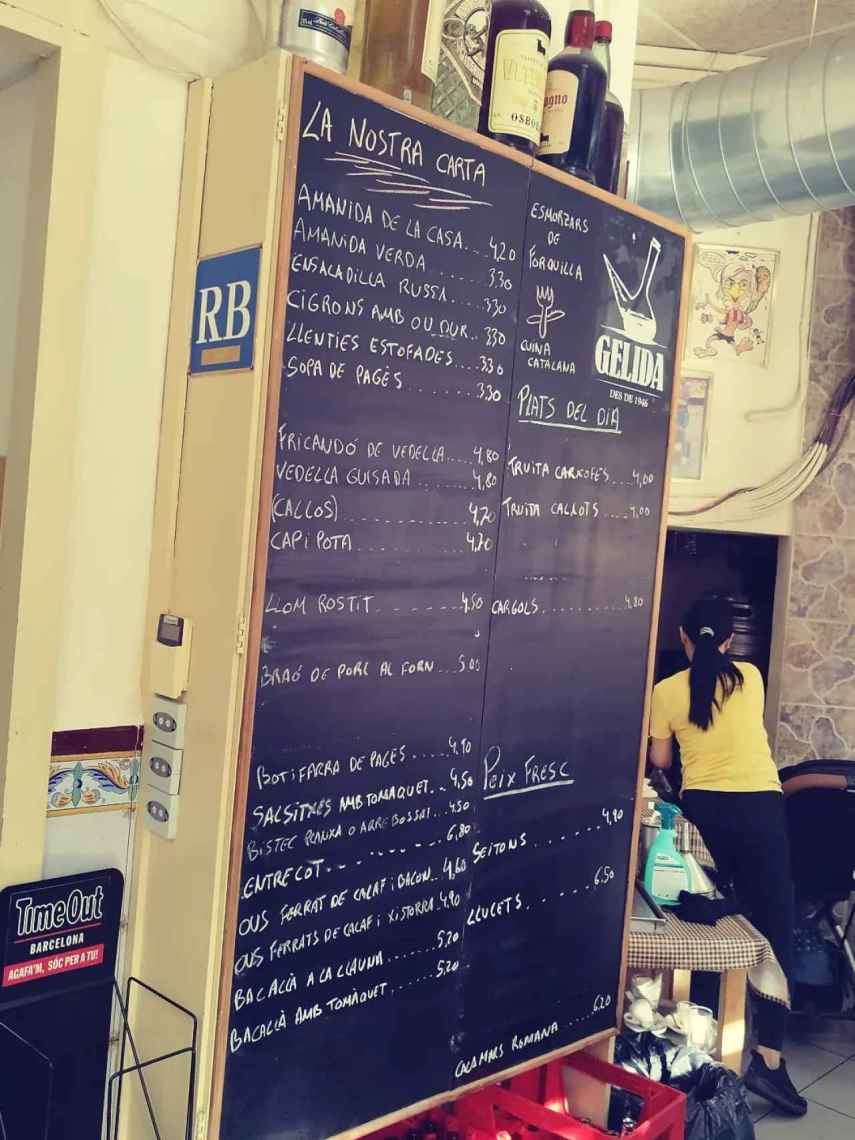 LA NOSTRA CARTA
AMANIDA DE LA CASA...4,20
AMANIDA VERDA.......3,30
ENSALADILLA RUSSA....3,30
CIGRONS AMB OU DUR..3,30
LLENTIES ESTOFADES....3,30
SOPA DE PAGÈS........3,30
FRICANDÓ DE VEDELLA.....4,80
VEDELLA GUISADA........4,80
(CALLOS)...............4,20
CAP i POTA.............4,20
LLOM ROSTIT.........4,50
BRAÓ DE PORC AL FORN...5,00
BOTIFARRA DE PAGÈS.....4,90
SALSITXES AMB TOMAQUET..4,50
BISTEC PLANXA O ARREBOSSAT...4,50
ENTRECOT...........6,80
OUS FERRAT DE CALAF i BACON..4,60
OUS FERRATS DE CALAF i XISTORRA.4,90
BACALLÀ A LA LLAUNA......5,20
BACALLÀ AMB TOMÀQUET.....5,20
ESMORZARS
DE
FORQUILLA
CUINA
CATALANA
GELIDA
DES DE 1946
PLATS DEL DIA
TRUITA CARXOFES....4,00
TRUITA CALÇOTS....4,00
CARGOLS...........4,80
PEIX FRESC
SEITONS.......4,90
LLUCETS......6,50
CALAMARS ROMANA......6,20
RB
TimeOut
BARCELONA
AGAFA'M, SÓC PER A TU!
OSBO